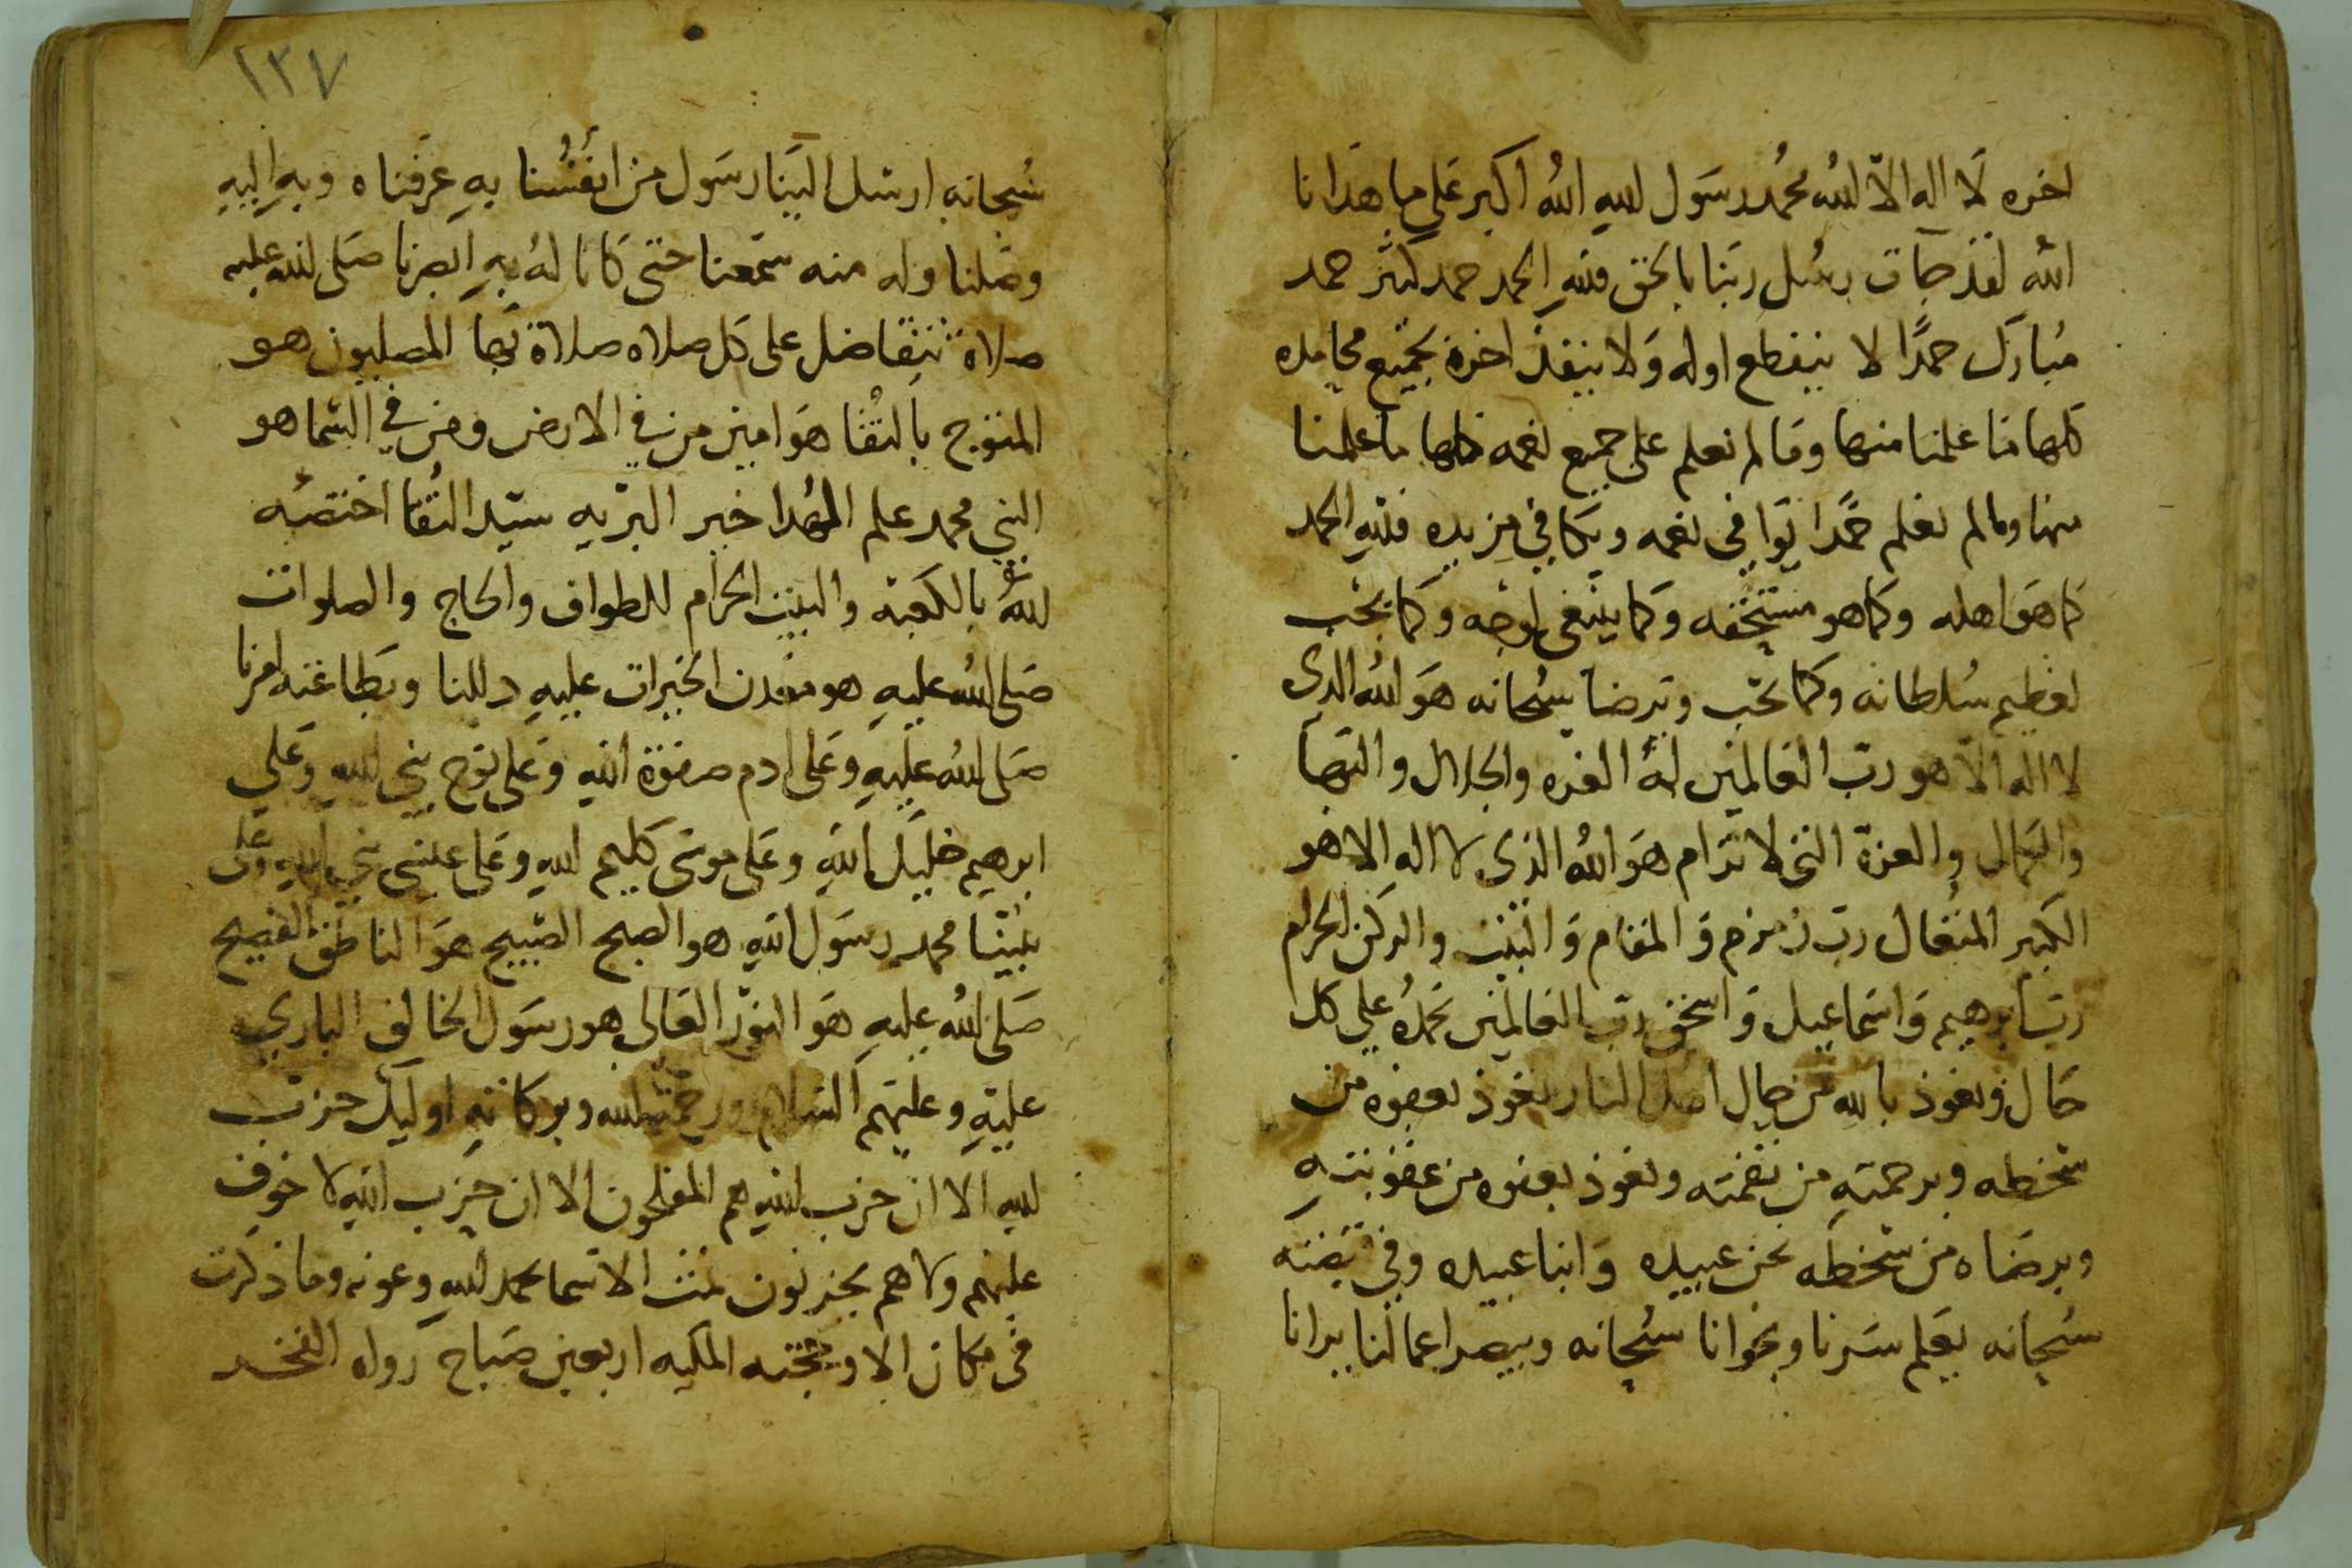 اخره لَا اله الاّ الله محُمد رسَول الله اللهُ اكبر عَلى ما هدَانا
الله لقد جآت رسُل ربَنا بالحق فلله الحمد حمد كثر حمد
مُبارَك حمدًا لا ينقطع اوله وَلا ينفذ اخره بجميَع محامده
كلها مَا علمنا منها ومَا لم نعلم على جميع نعمه كلها ما علمنا
منها وما لم نعلم حمدًا يوَافى نعمه ويكافي مزيده فلله الحمد
كما هوَ اهله وكما هو مستحقه وكما ينبغى لوجهه وكما يحب
لعظيم سُلطانه وكما يحَب وترضا سُبحانه هوَ اللهُ الذى
لا اله الاّ هو ربّ العَالمين لهُ العزه والجلال والبَها
والكمال والعزة التى لا تَرَام هوَ اللهُ الذى لا اله الا هو
الكَبير المتعَال ربّ زمزم وَالمقام وَالبيت والركن الحرام
ربّ ابرهيم وَاسماعيل وَاسحق ربّ العالمين نحمدهُ على كل
حَال ونعوذ بالله من حال اهل النار ونعوذ بعفوه من
سَخطه وبرحمتهِ من نقمته ونعوذ بعفوه من عقوبتهِ
وبرضَاه من سَخطه نحن عبيده وَابنا عبيده وفي قبضته
سُبحانه يعَلم سَرنا ونجوانا سُبحانه ويبصر اعمالنا يرانا
١٣٧
سُبحانه ارسَل الينَا رسَول من انفسُنا بهِ عرَفناه وبهِ اليهِ
وصَلنا وله منه سَمعنا حتى كَانا لهُ بهِ ابصرنا صَلى الله عليه
صلاة تتفاضل على كل صلاه صلاة بهَا المصليون هو
المتوج بالتقا هوَ امين من في الارض ومن في السَما هو
النبي محمد علم الهُدا خير البريه سيّد التُقا اختصّه
اللهُ بالكعَبة والبيت الحرَام للطواف والحاج والصلوات
صَلى اللهُ عليهِ هو معَدن الخيرات عليهِ دللنا وبَطاعته امرنا
صَلى اللهُ عليهِ وعَلى ادم صفوَة اللهِ وعَلى نوَح نبى اللهِ وعَلي
ابرهيم خليَل اللهِ وعَلى موسَى كليم اللهِ وعَلى عيسَى نبي اللهِ وعَلى
نبينَا محمد رسَول اللهِ هو الصبح الصَبيح هوَ الناطق الفصيح
صَلى اللهُ عليهِ هوَ النوَر العَالى هو رسَول الخالق الباري
عليهِ وعليهَم السَلام ورحمَة الله وبركاتهِ اوليك حزبَ
اللهِ الا ان حزب اللهِ هم المفلحون الا ان حزب اللهِ لا خوَف
عليَهم ولا هم يحَزنون تمت الاسَما بحمد اللهِ وعونه وما ذكرت
فى مكان الا وحجته الملكيه اربعين صَباح رواه الفخر